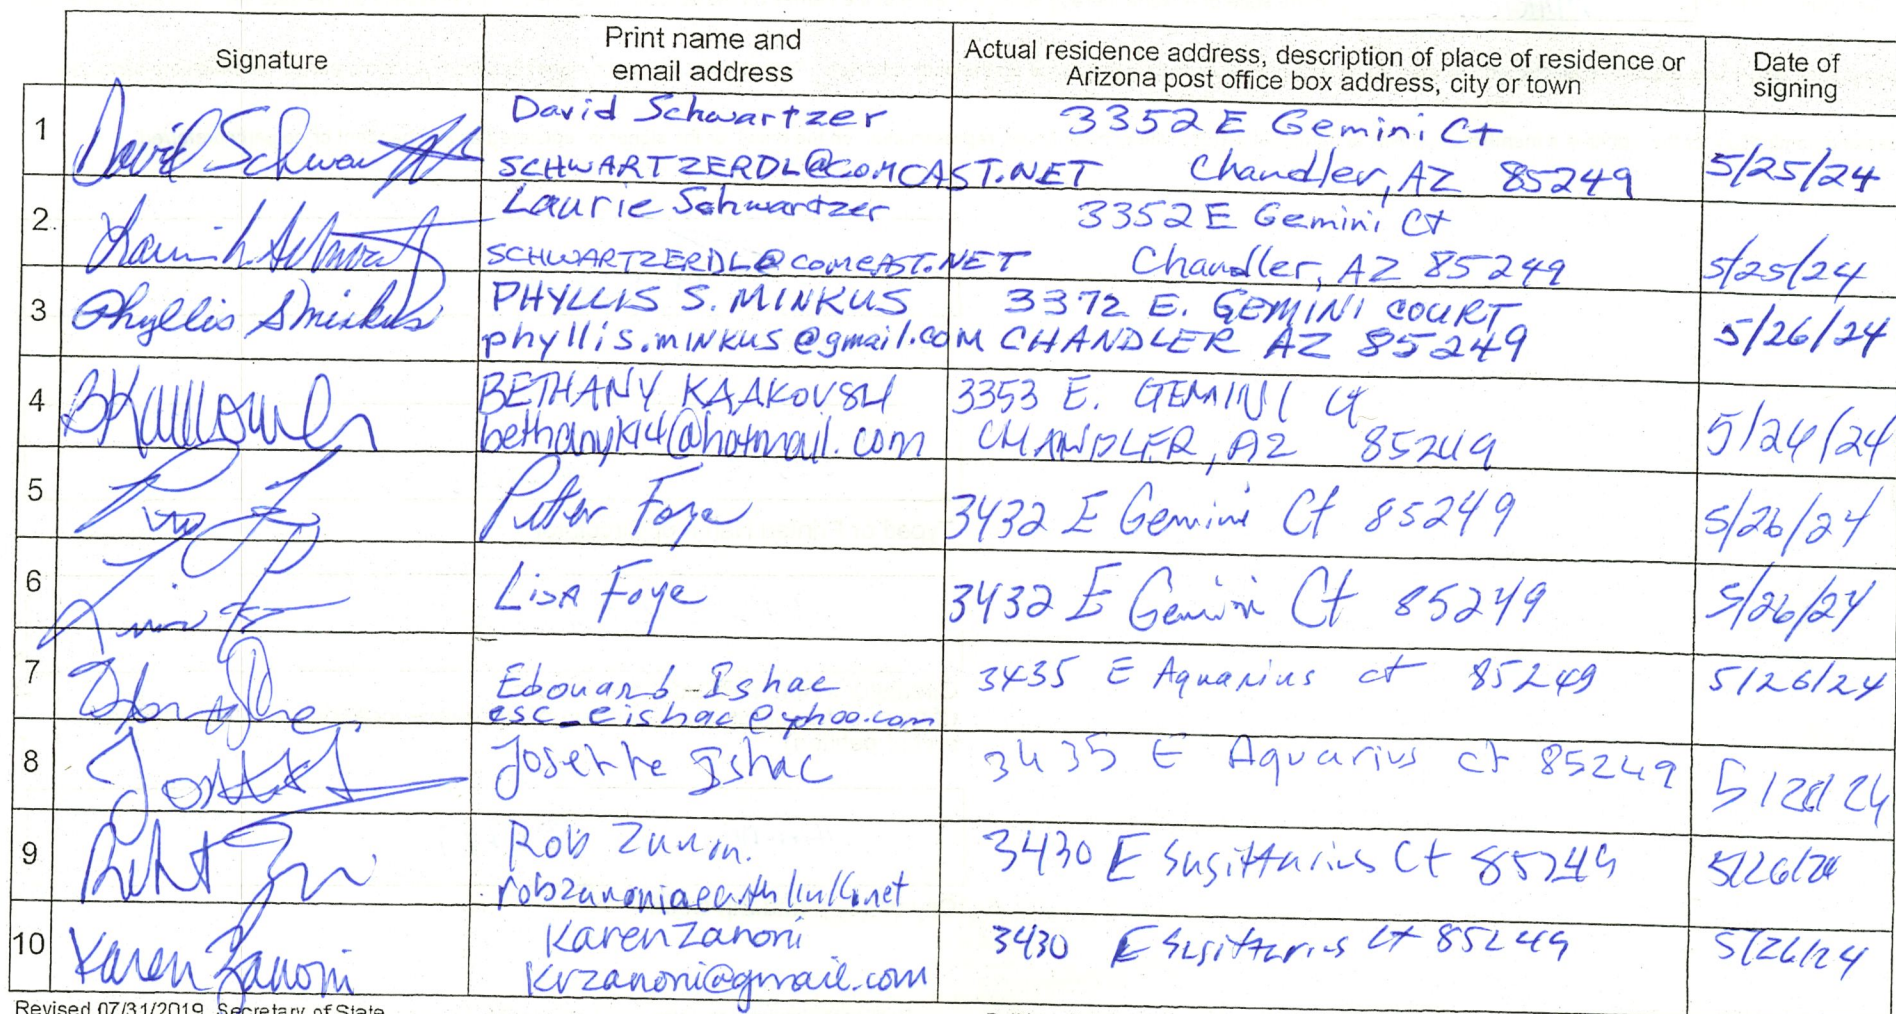 Signature
Print name and
email address
Actual residence address, description of place of residence or
Arizona post office box address, city or town
Date of
signing
1
David Schwartzer
David Schwartzer
SCHWARTZERDL@COMCAST.NET
3352 E Gemini Ct
Chandler, AZ 85249
5/25/24
2.
Laurie Schwartzer
SCHWARTZERDL@COMCAST.NET
3352 E Gemini Ct
Chandler, AZ 85249
5/25/24
3
Phyllis S Minkus
PHYLLIS S. MINKUS
phyllis.minkus@gmail.com
3372 E. GEMINI COURT
CHANDLER AZ 85249
5/26/24
4
BETHANY
bethanyk14@hotmail.com
3353 E. GEMINI Ct
CHANDLER, AZ 85249
5/26/24
5
Foye
3432 E Gemini Ct 85249
5/26/24
6
Lisa Foye
3432 E Gemini Ct 85249
5/26/24
7
Edouard Ishac
esc_eishac@yhoo.com
3435 E Aquarius ct 85249
5/26/24
8
Josette Ishac
3435 E Aquarius ct 85249
9
Rob
3430 E Sagittarius Ct 85249
5/26/24
10
Karen Zanoni
Karen Zanoni
Krzanoni@gmail.com
3430 E Sagittarius Ct 85249
5/26/24
Revised 07/31/2019 Secretary of State